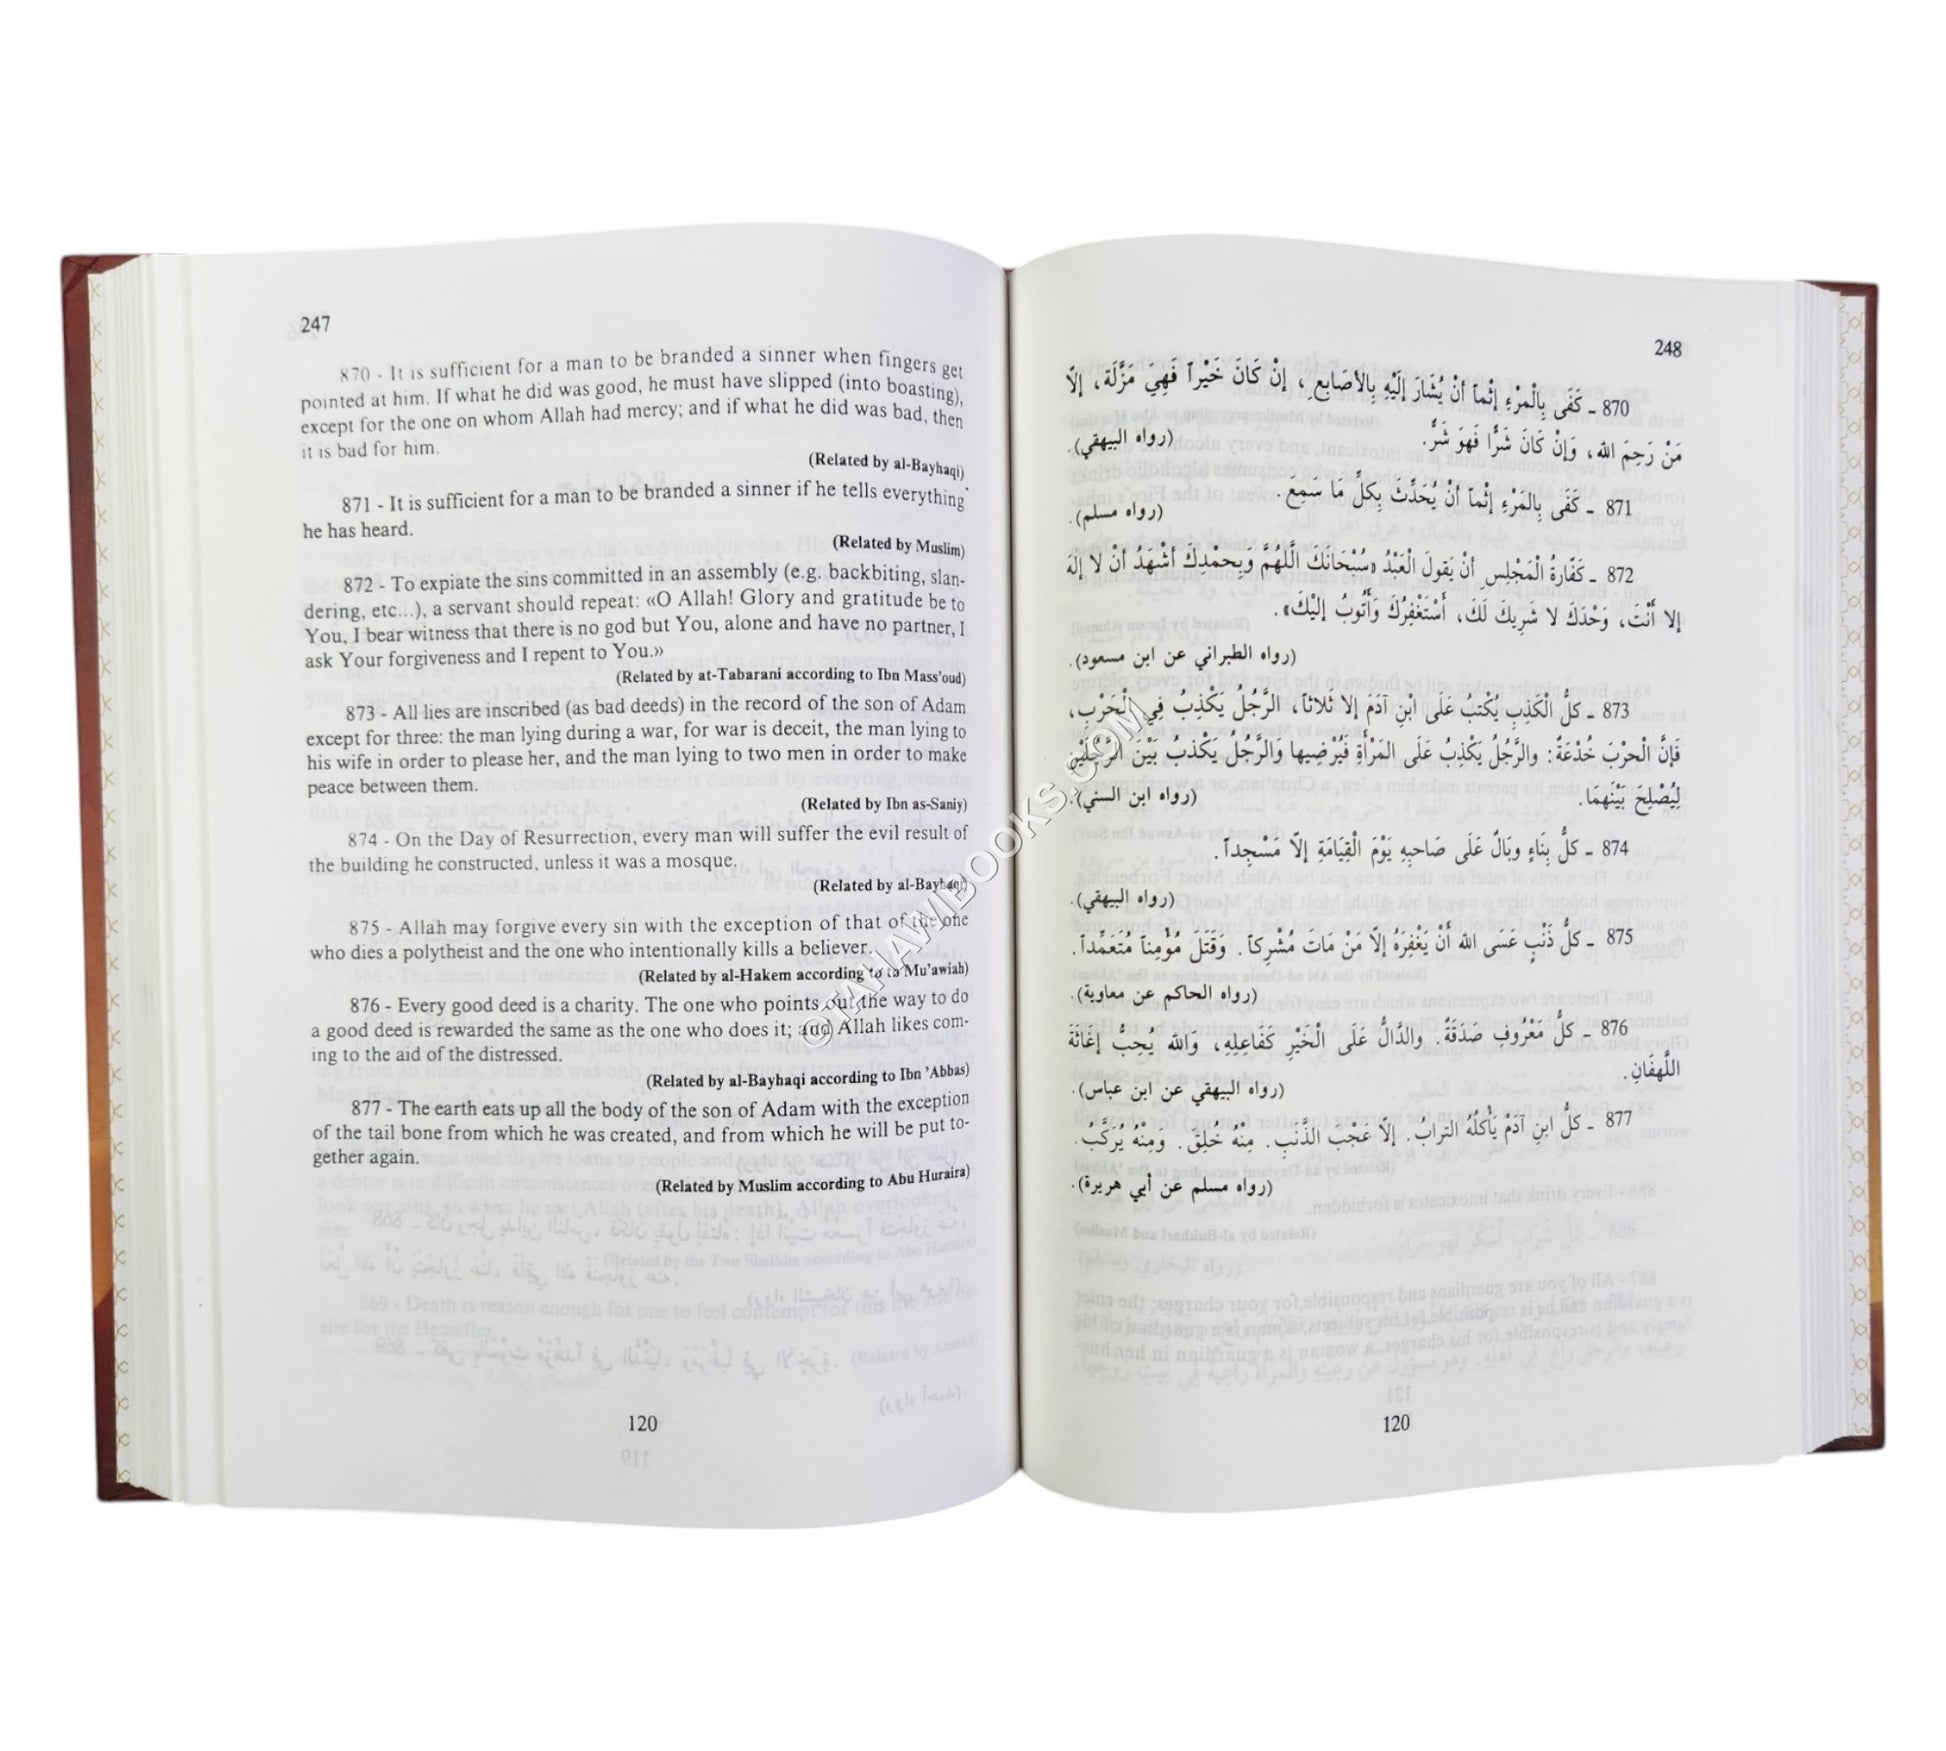 247
870 - It is sufficient for a man to be branded a sinner when fingers get
pointed at him. If what he did was good, he must have slipped (into boasting),
except for the one on whom Allah had mercy; and if what he did was bad, then
it is bad for him.
(Related by al-Bayhaqi)
871 - It is sufficient for a man to be branded a sinner if he tells everything
he has heard.
(Related by Muslim)
872 - To expiate the sins committed in an assembly (e.g. backbiting, slan-
dering, etc...), a servant should repeat: «O Allah! Glory and gratitude be to
You, I bear witness that there is no god but You, alone and have no partner, I
ask Your forgiveness and I repent to You.»
(Related by at-Tabarani according to Ibn Mass'oud)
873 - All lies are inscribed (as bad deeds) in the record of the son of Adam
except for three: the man lying during a war, for war is deceit, the man lying to
his wife in order to please her, and the man lying to two men in order to make
peace between them.
(Related by Ibn as-Saniy)
874 - On the Day of Resurrection, every man will suffer the evil result of
the building he constructed, unless it was a mosque.
(Related by al-Bayhaqi)
875 - Allah may forgive every sin with the exception of that of the one
who dies a polytheist and the one who intentionally kills a believer.
(Related by al-Hakem according to to Mu'awiah)
876 - Every good deed is a charity. The one who points out the way to do
a good deed is rewarded the same as the one who does it; and Allah likes com-
ing to the aid of the distressed.
(Related by al-Bayhaqi according to Ibn 'Abbas)
877 - The earth eats up all the body of the son of Adam with the exception
of the tail bone from which he was created, and from which he will be put to-
gether again.
(Related by Muslim according to Abu Huraira)
120
248
870 ـ كَفَى بِالْمَرْءِ إثْماً أنْ يُشَارَ إلَيْهِ بِالأصَابِعِ، إنْ كَانَ خَيْراً فَهِيَ مَزَّلَة، إلّا
مَنْ رَحِمَ الله، وَإنْ كَانَ شَرًّا فَهوَ شَرٌّ. (رواه البيهقي).
871 ـ كَفَى بِالمَرْءِ إثْماً أنْ يُحَدِّثَ بِكلِّ مَا سَمِعَ. (رواه مسلم).
872 ـ كَفّارةُ الْمَجْلِسِ أنْ يَقولَ الْعَبْدُ «سُبْحَانَكَ الَّلهُمَّ وَبِحمْدِكَ أشْهَدُ أنْ لا إلَهَ
إلا أَنْتَ، وَحْدَكَ لا شَرِيكَ لَكَ، أسْتَغْفِرُكَ وَأتُوبُ إليْكَ».
(رواه الطبراني عن ابن مسعود).
873 ـ كلُّ الْكَذِبِ يُكْتبُ عَلَى ابْنِ آدَمَ إلا ثَلاثاً، الرَّجُلُ يَكْذِبُ فِي الْحَرْبِ،
فَإنَّ الْحرْبَ خُدْعَةٌ: والرَّجُلُ يَكْذِبُ عَلَى المَرْأةِ فَيُرْضِيها وَالرَّجُلُ يَكْذبُ بَيْنَ الرَّجُلَيْنِ
لِيُصْلِحَ بَيْنَهمَا. (رواه ابن السني).
874 ـ كلُّ بِنَاءٍ وبَالٌ عَلَى صَاحبِهِ يَوْمَ الْقِيَامَةِ إلّا مَسْجِداً.
(رواه البيهقي).
875 ـ كلُّ ذَنْبٍ عَسَى الله أنْ يَغْفِرَهُ إلاّ مَنْ مَاتَ مُشْرِكاً. وَقَتَلَ مُؤْمِناً مُتَعَمِّداً.
(رواه الحاكم عن معاوية).
876 ـ كلُّ مَعْرُوفٍ صَدَقَةٌ. والدَّالُّ عَلَى الْخَيْرِ كَفَاعِلِهِ، وَالله يُحِبُّ إغَاثَةَ
اللَّهفَانِ. (رواه البيهقي عن ابن عباس).
877 ـ كلُّ ابنِ آدَمَ يَأْكلُهُ الترابُ. إلاّ عَجْبَ الذَّنَبِ. مِنْهُ خُلِقَ. وَمِنْهُ يُرَكَّبُ.
(رواه مسلم عن أبي هريرة).
120
©TAHAVIBOOKS.COM